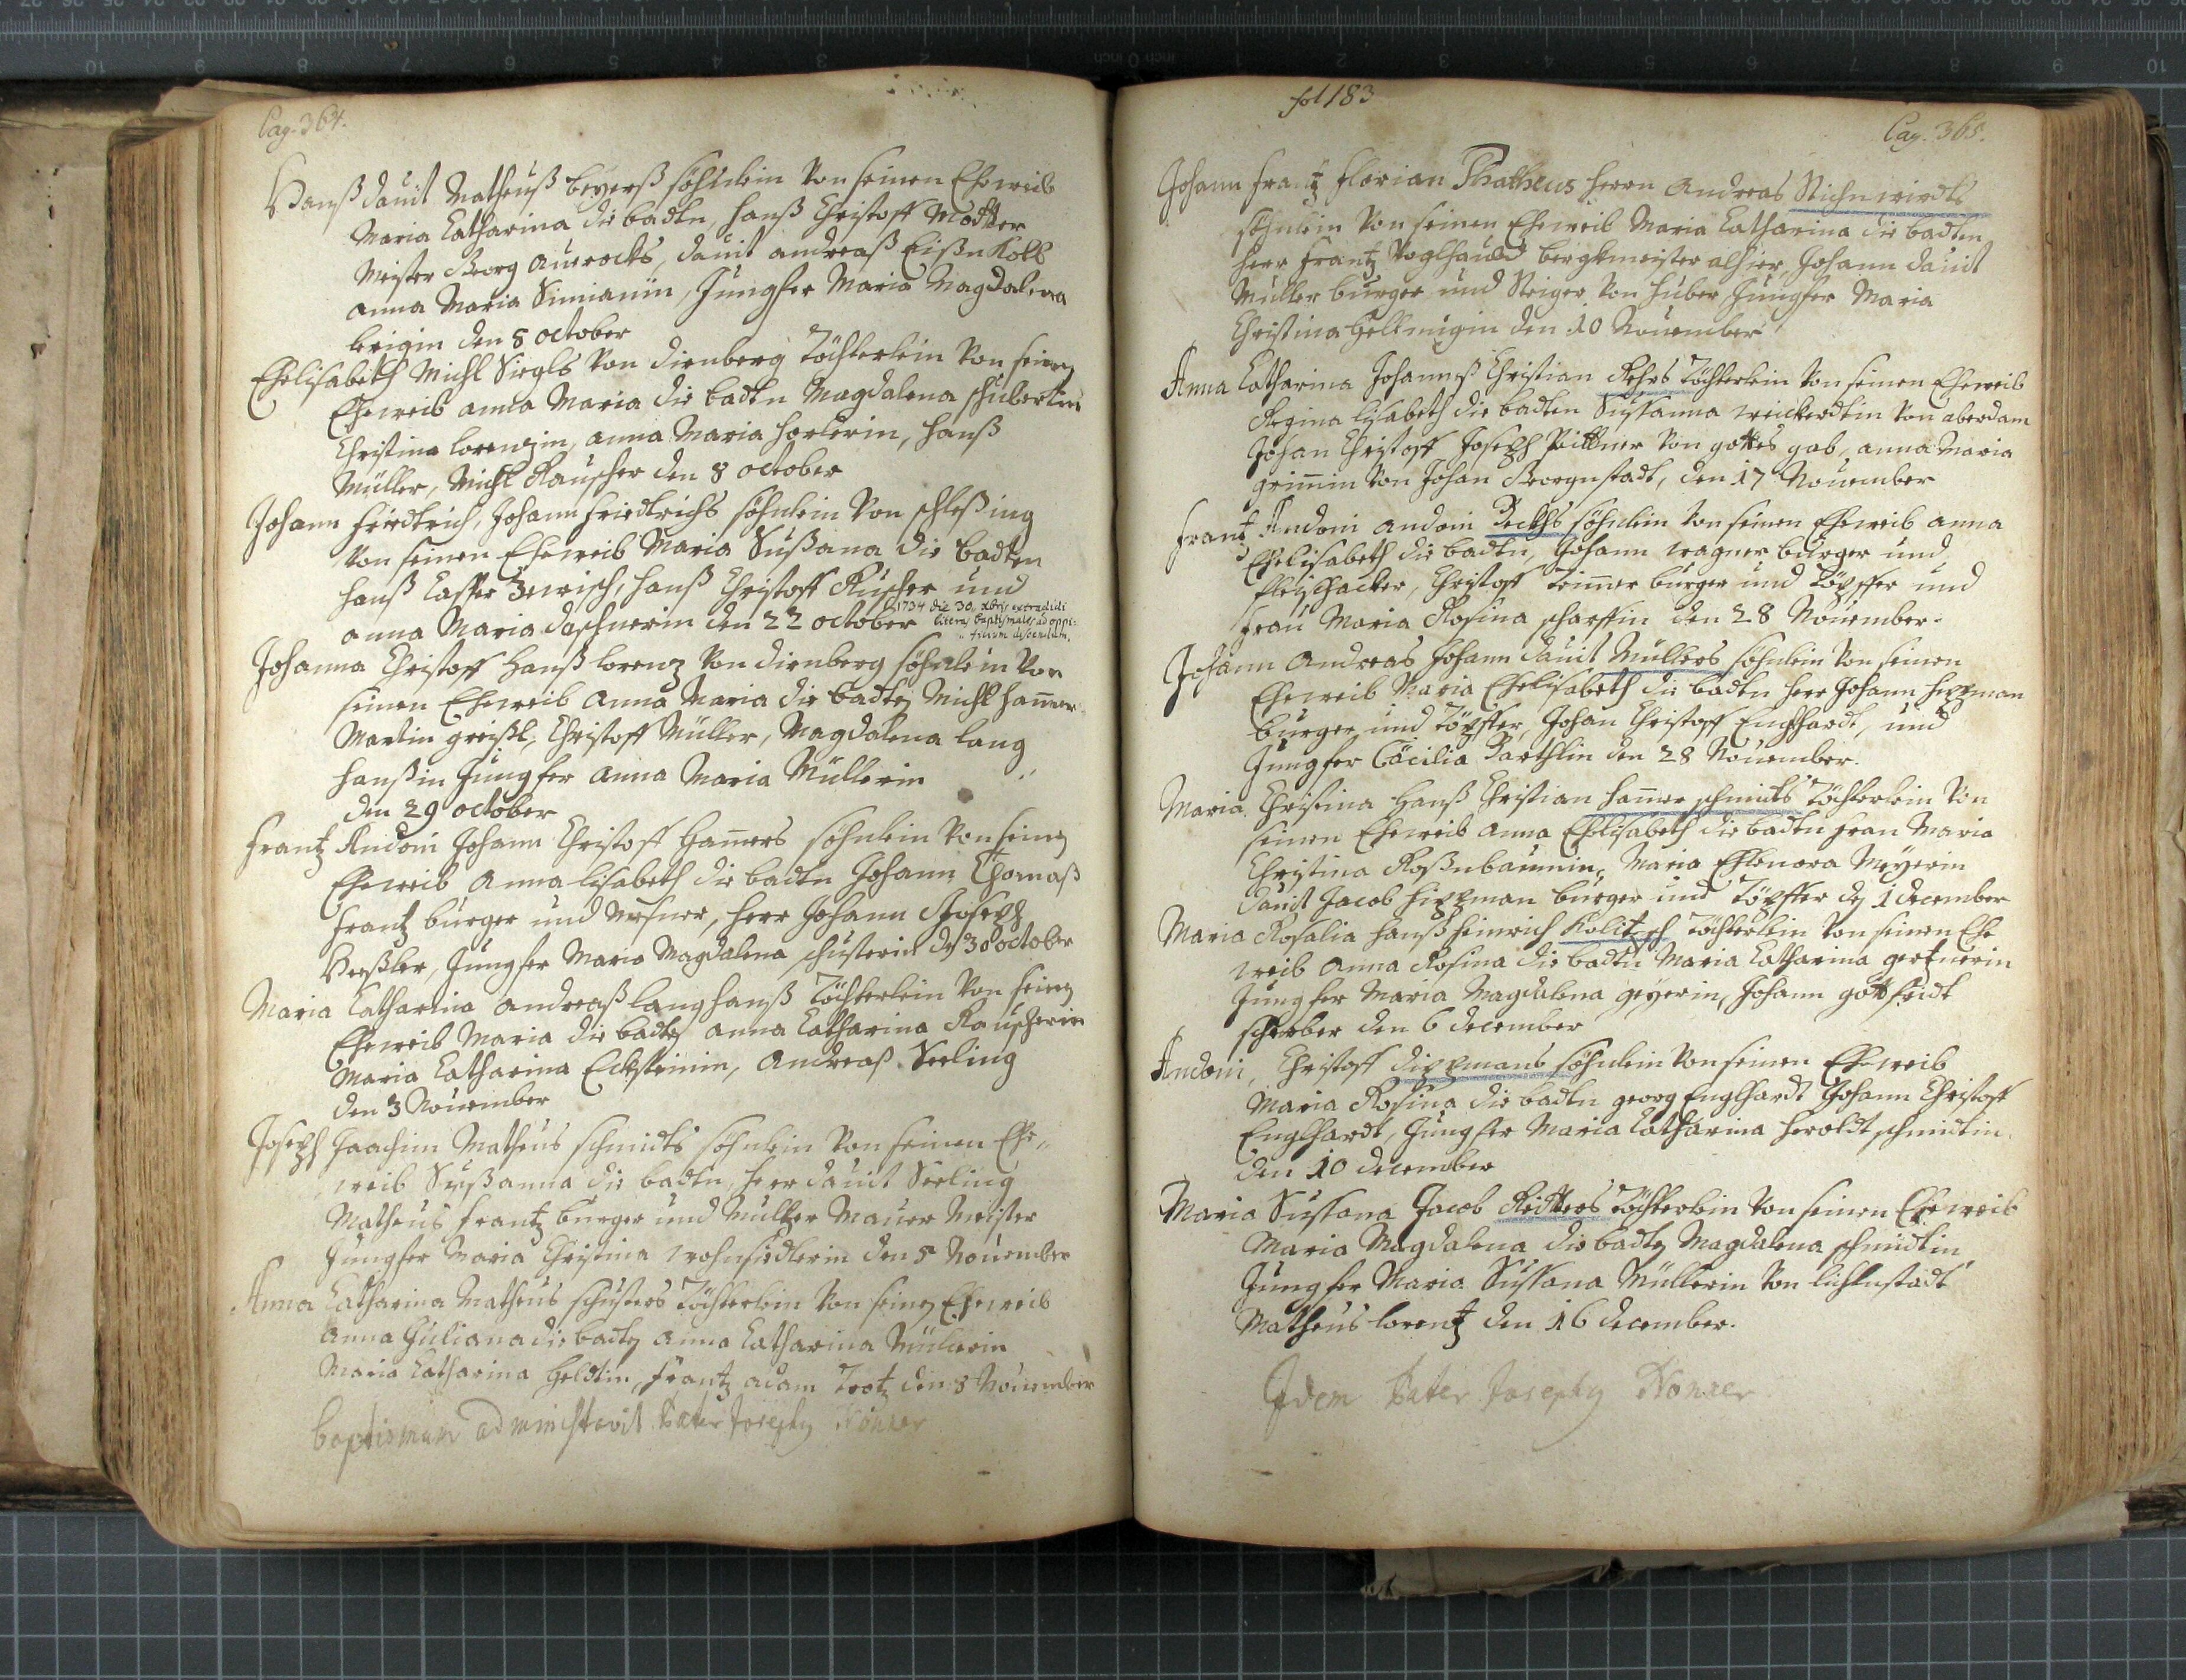 Pag. 364.
Hanß dauit Matheuß beyerß söhnlein Von seinen Eheweib
Maria Catharina die badtn, Hanß Christoff Modter
Meister Georg auerochs, dauit andreaß Eißnkolb
anna Maria Simianin, Jungfer Maria Magdalena
den 8 october
Ehelisabeth Michl Siegls Von dirnberg Töchterlein Von seinen
Eheweib anna Maria die badtn Magdalena schubertin
Christina lorenzin, anna Maria horlerin, Hanß
Müller, Michl Rauscher den 8 october
Johann Friedtrich, Johann Friedtrichs söhnlein Von schleßing
Von seinen Eheweib Maria Sußana die badten
Hanß Casper Zewisch, Hanß Christoff Ruscher und
anna Maria daschnerin den 22 october
1734 die 30 xbris extradidi
literas baptismales ad oppi-
Johanna Christoff Hanß lorenz Von dirnberg söhnlein Von
seinen Eheweib Anna Maria die badten Michl Ham̄er
Martin greißl, Christoff Müller, Magdalena lang
Hanßin Jungfer Anna Maria Müllerin
den 29 october
Frantz Andoni Johann Christoff Ham̄ers söhnlein Von seinen
Eheweib Anna lisabeth die badtn Johann Thomaß
Frantz burger und Mesner, Herr Johann Joseph
Heßler, Jungfer Maria Magdalena schusterin den 30 october
Maria Catharina andreaß langhanß Töchterlein Von seinen
Eheweib Maria die badten anna Catharina Rauscherin
Maria Catharina Ecksteinin, Andreaß Seeling
den 3 Nouember
Joseph Joachim Matheus schmidts söhnlein Von seinen Ehe-
weib Sußanna die badtn, Herr dauit Seeling
Matheus Frantz burger und Maurer Meister
Jungfer Maria Christina wohnsiedlerin den 5 Nouember
Anna Catharina Matheus schusters Töchterlein Von seinen Eheweib
Anna Juliana die badten Anna Catharina Müllerin
Maria Catharina Heldtin, Frantz adam Trotz den 8 Nouember
baptismum administravit Pater Josephy
fol 183
Pag. 365.
Johann Frantz Florian Thatheus Herrn Andreas Stichnwirdts
söhnlein Von seinen Eheweib Maria Catharina die badten
Herr Frantz Voglhaubt bergkmeister alhier, Johann dauit
Müller burger und Steiger Von Huber Jungfer Maria
Christina Hellmigin den 10 Nouember
Anna Catharina Johanneß Christian Rehrs Töchterlein Von seinen Eheweib
Regina lisabeth die badten Sussanna weickerdtin Von aberdam
Johan Christoff Joseph Püttner Von gottes gab, anna Maria
grim̄in Von Johan Georgnstadt, den 17 Nouember
Frantz Andoni andoni Zechs söhnlein Von seinen Eheweib anna
Ehelisabeth die badtn, Johann wagner burger und
fleischacker, Christoff burger und Töpffer und
Frau Maria Rosina scharffin den 28 Nouember.
Johann Andreas Johann dauit Müllers söhnlein Von seinen
Eheweib Maria Ehelisabeth die badtn Herr Johann Hizzman
burger und Töpffer, Johan Christoff Englhardt, und
Jungfer Cäcilia Barthlin den 28 Nouember.
Maria Christina Hanß Christian Ham̄erschmidts Töchterlein Von
seinen Eheweib anna Ehelisabeth die badtn Frau Maria
Christina Roßnbaumin, Maria Ehlenora Meyerin
dauit Jacob Hizzman burger und Töpffer den 1 december
Maria Rosalia Hanß Heinrich Kolitsch Töchterlein Von seinen Ehe
weib Anna Rosina die badtn Maria Catharina gertnerin
Jungfer Maria Magdalena geyerin, Johann gottfridt
schreiber den 6 december
Andoni, Christoff dizzmans söhnlein Von seinen Eheweib
Maria Rosina die badtn georg Englhardt Johann Christoff
Englhardt, Jungfer Maria Catharina Heroldtschmidtin
den 10 december
Maria Sussana Jacob Ridters Töchterlein Von seinen Eheweib
Maria Magdalena die badten Magdalena schmidtin
Jungfer Maria Sussana Müllerin Von lichtnstadt
Matheus lorentz den 16 december.
Idem Pater Josephy